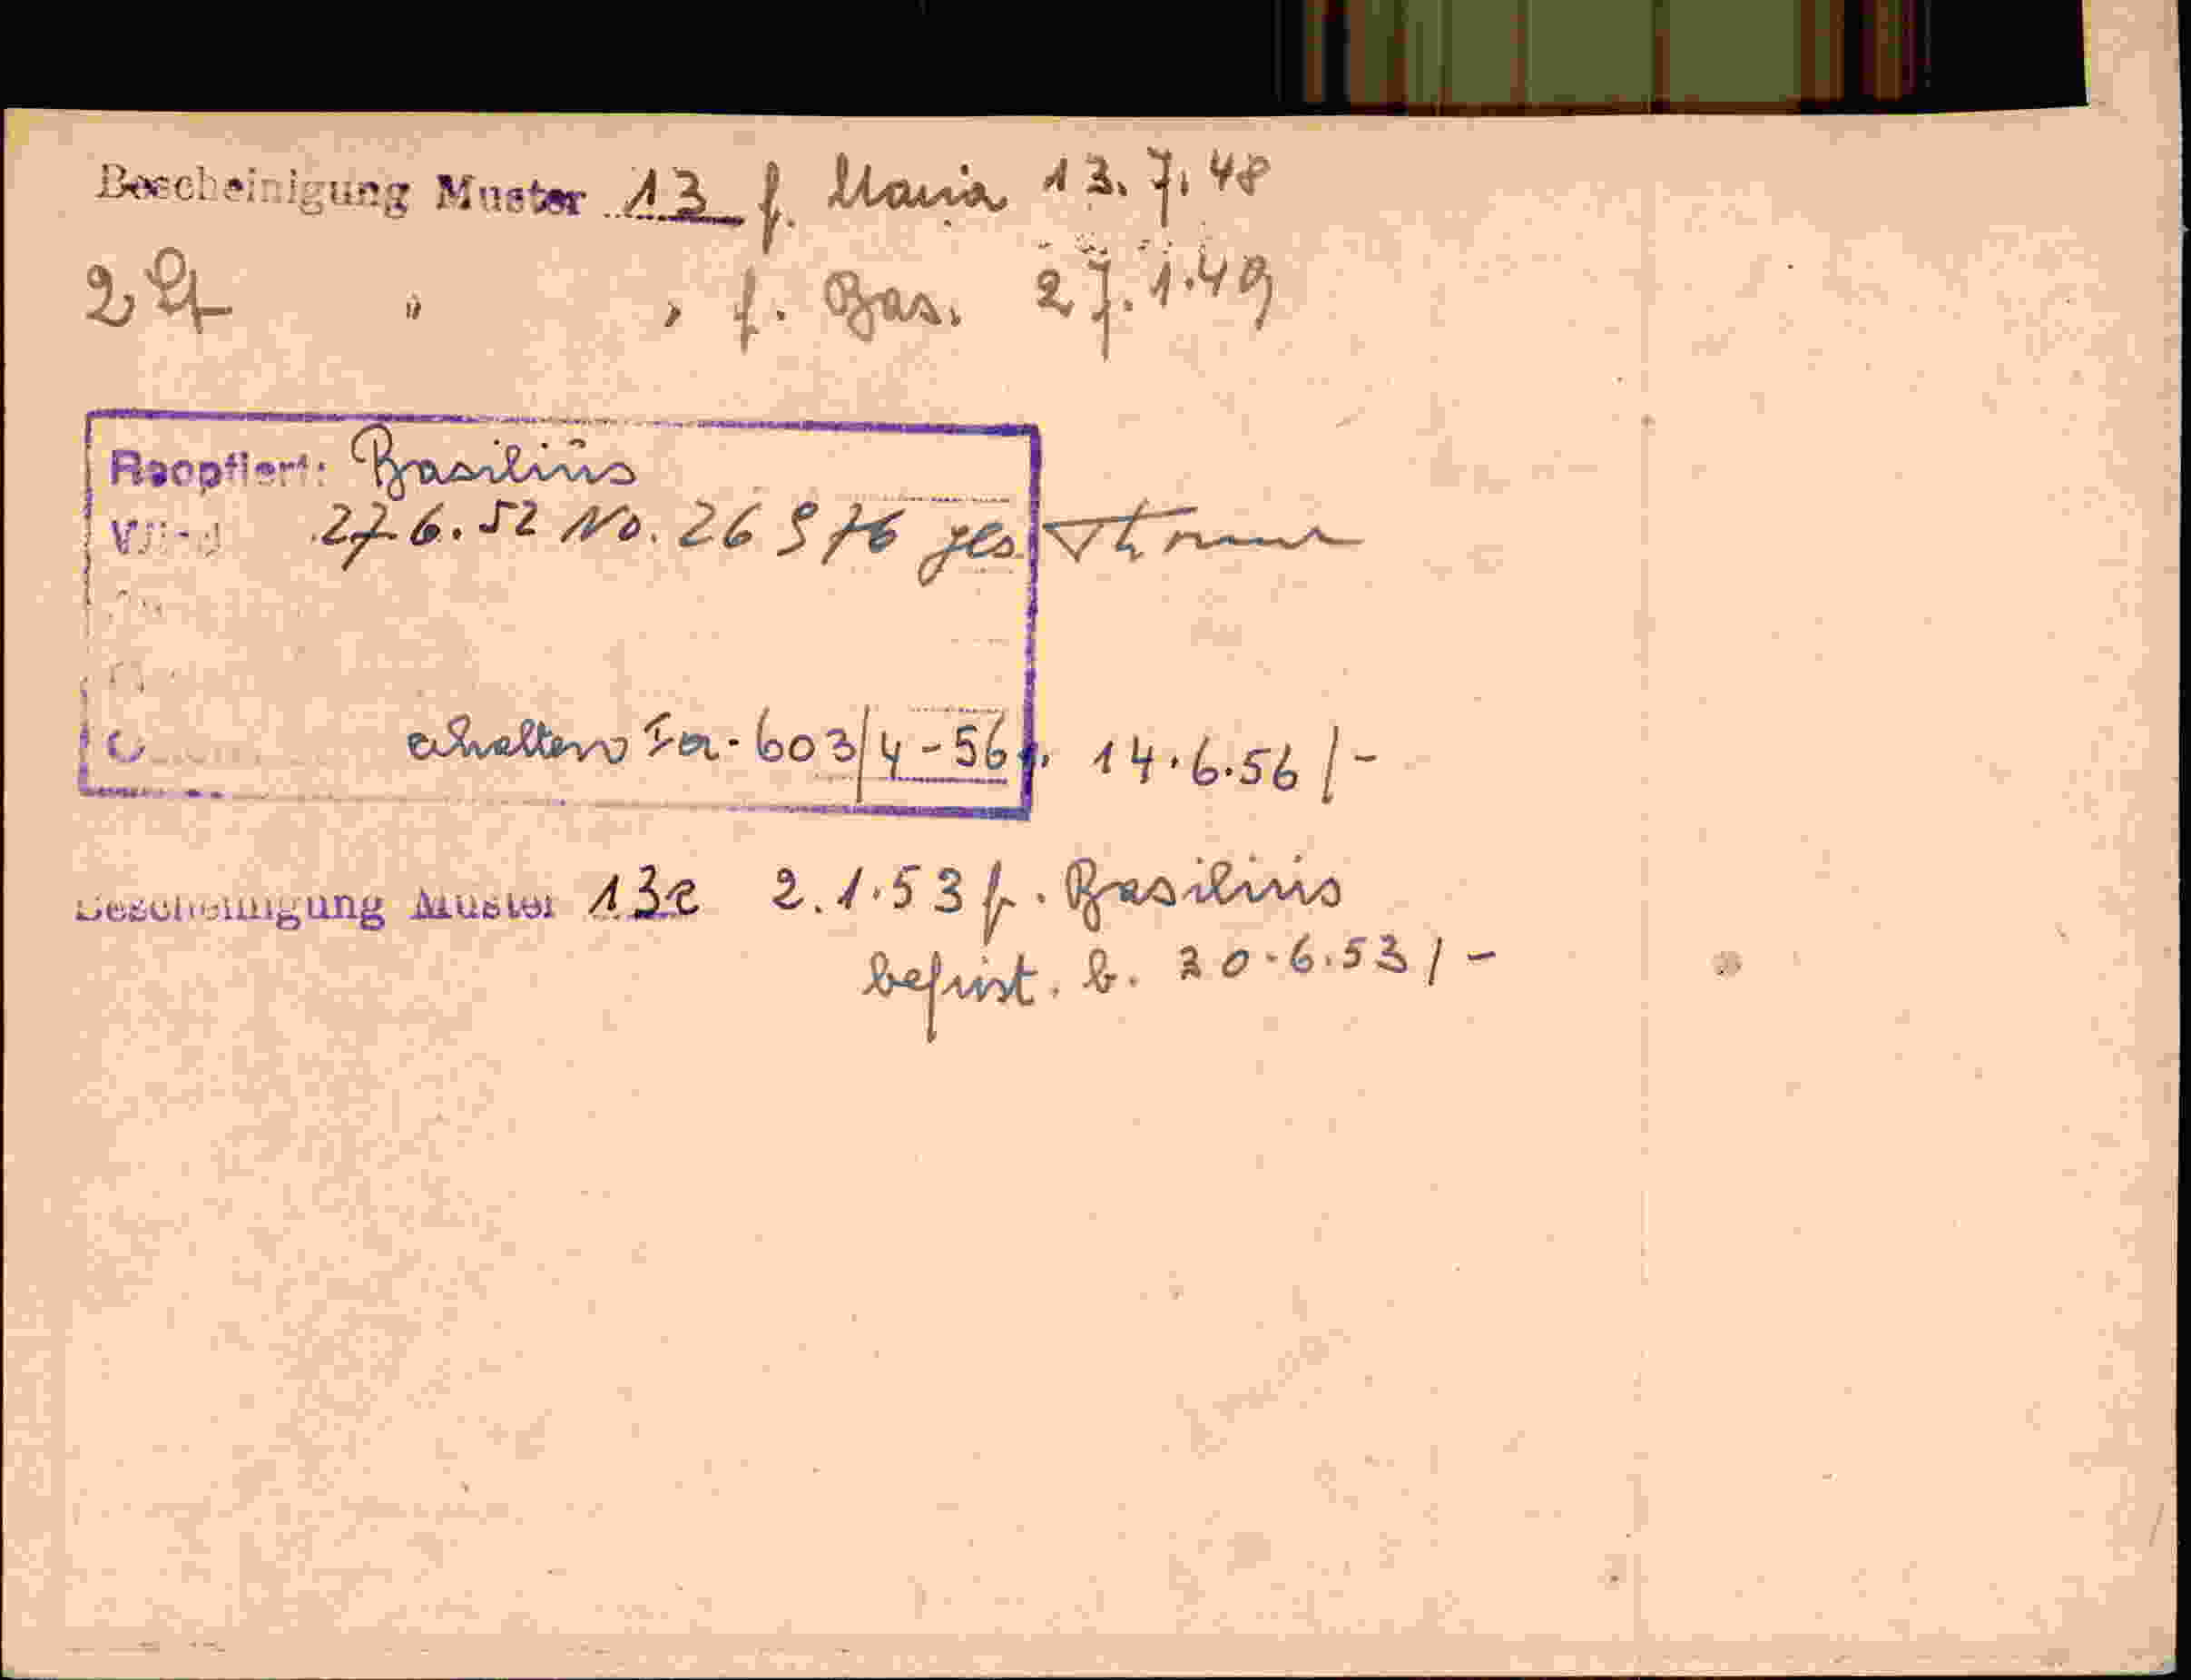 Bescheinigung Muster 13 f. Maria 13.7.48
2 " , f. Bas. 27.1.49
Reoptiert: Basilius
27.6.52 No. 26976 ges.
erhalten 603/4-56 f. 14.6.56 /-
Bescheinigung Muster 13c 2.1.53 f. Basilius
befrist. b. 30.6.53 /-